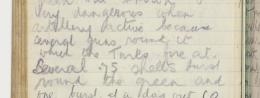 very dangerous when
artillery active because
several guns round it
which the Turks are at.
Several .75 shells burst
round the screen and
one burst